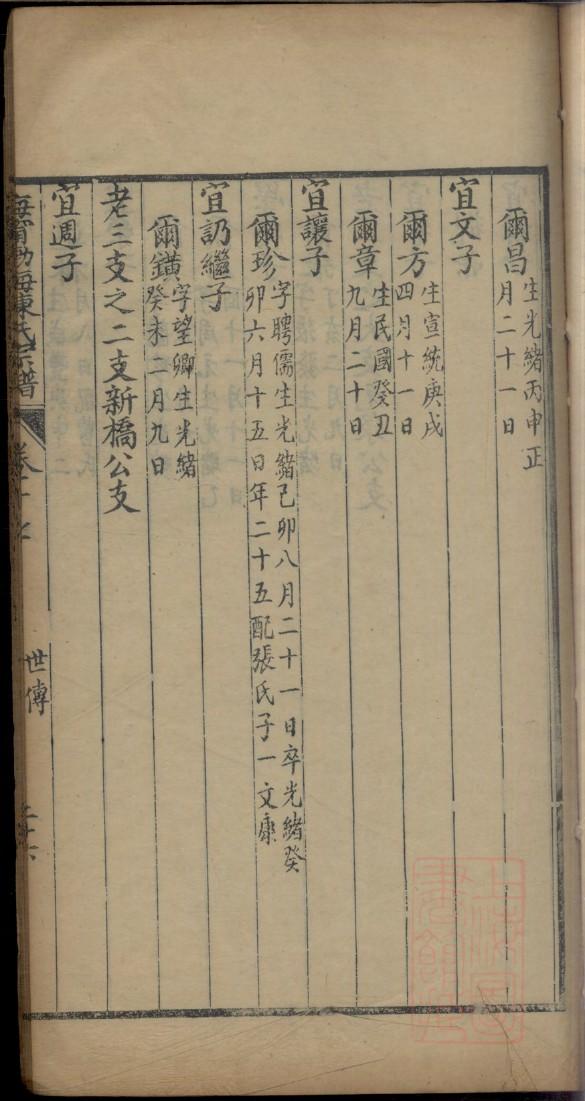 爾昌
生光緒丙申正
月二十一日
宜文子
爾方
生宣統庚戌
四月十一日
爾章
生民國癸丑
九月二十日
宜讓子
爾珍
字聘儒生光緒己卯八月二十一日卒光緒癸
卯六月十五日年二十五配張氏子一文康
宜訒繼子
爾鐄
字望卿生光緒
癸未二月九日
老三支之二支新橋公支
宜週子
海寧渤海陳氏宗譜
世傳
上海圖書館藏